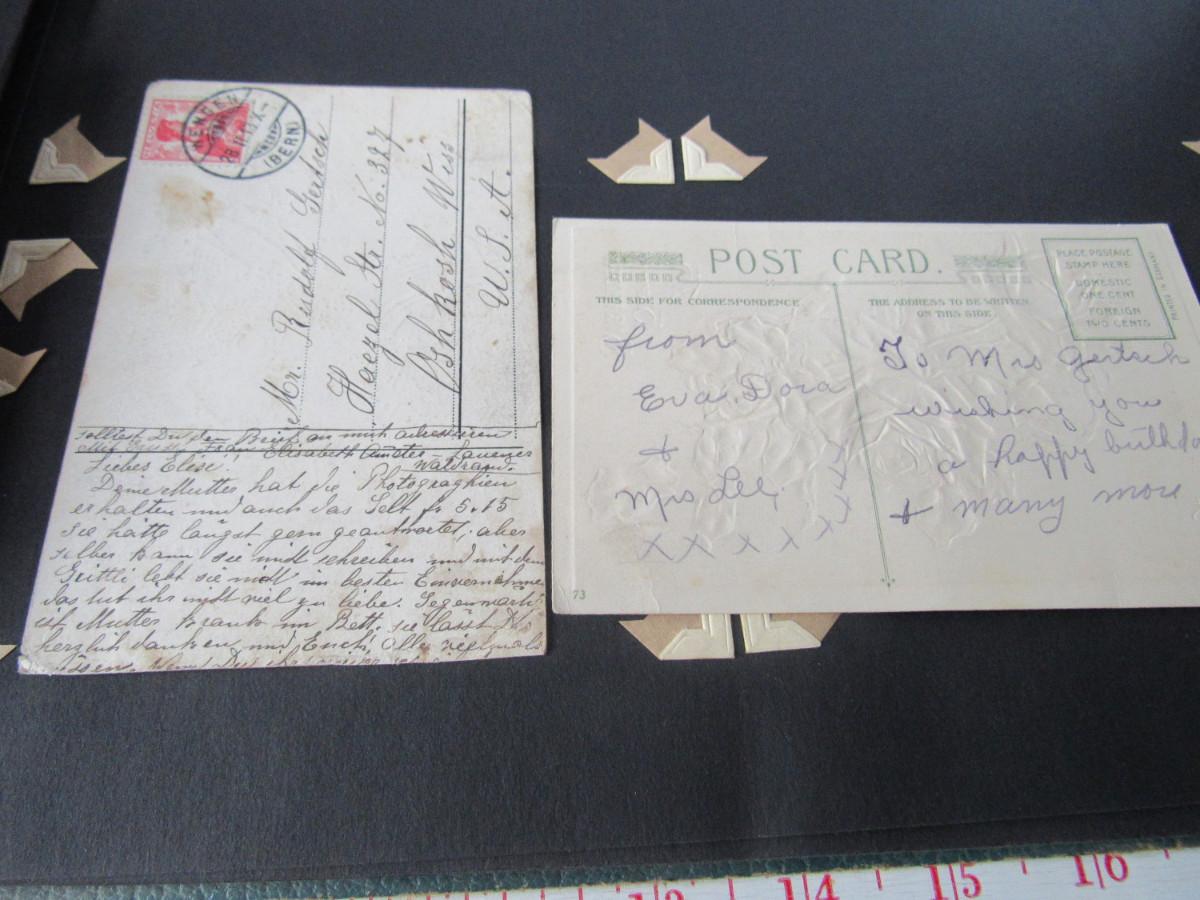 WENGEN
(BERN)
Mr. Rudolf Gertsch
Haezel Str. No. 327
Oshkosh Wiss
U. S. A.
solltest Du den Brief an mich adressieren
Frau Elisabeth Lauener
Waldrand.
Liebes Elise.
Deine Mutter hat die Photographien
erhalten und auch das Gelt fr 5.15
Sie hätte längst gern geantwortet, aber
selber kann sie nicht schreiben und mit dem
Grittli lebt sie nicht im besten Einvernehmen
das tut ihr nicht viel zu liebe. Gegenwärti
ist Mutter krank im Bett. sie lässt
herzlich danken und Euch alle vielmals
POST CARD.
THIS SIDE FOR CORRESPONDENCE
THE ADDRESS TO BE WRITTEN
ON THIS SIDE
PLACE POSTAGE
STAMP HERE
DOMESTIC
ONE CENT
FOREIGN
TWO CENTS
PRINTED IN GERMANY
from
Eva, Dora
+
Mrs Lee.
x
x
x
x x
x x x x x
To Mrs Gertsch
wishing you
a happy birthda
+ many more
73
1|4 1|5 1|6